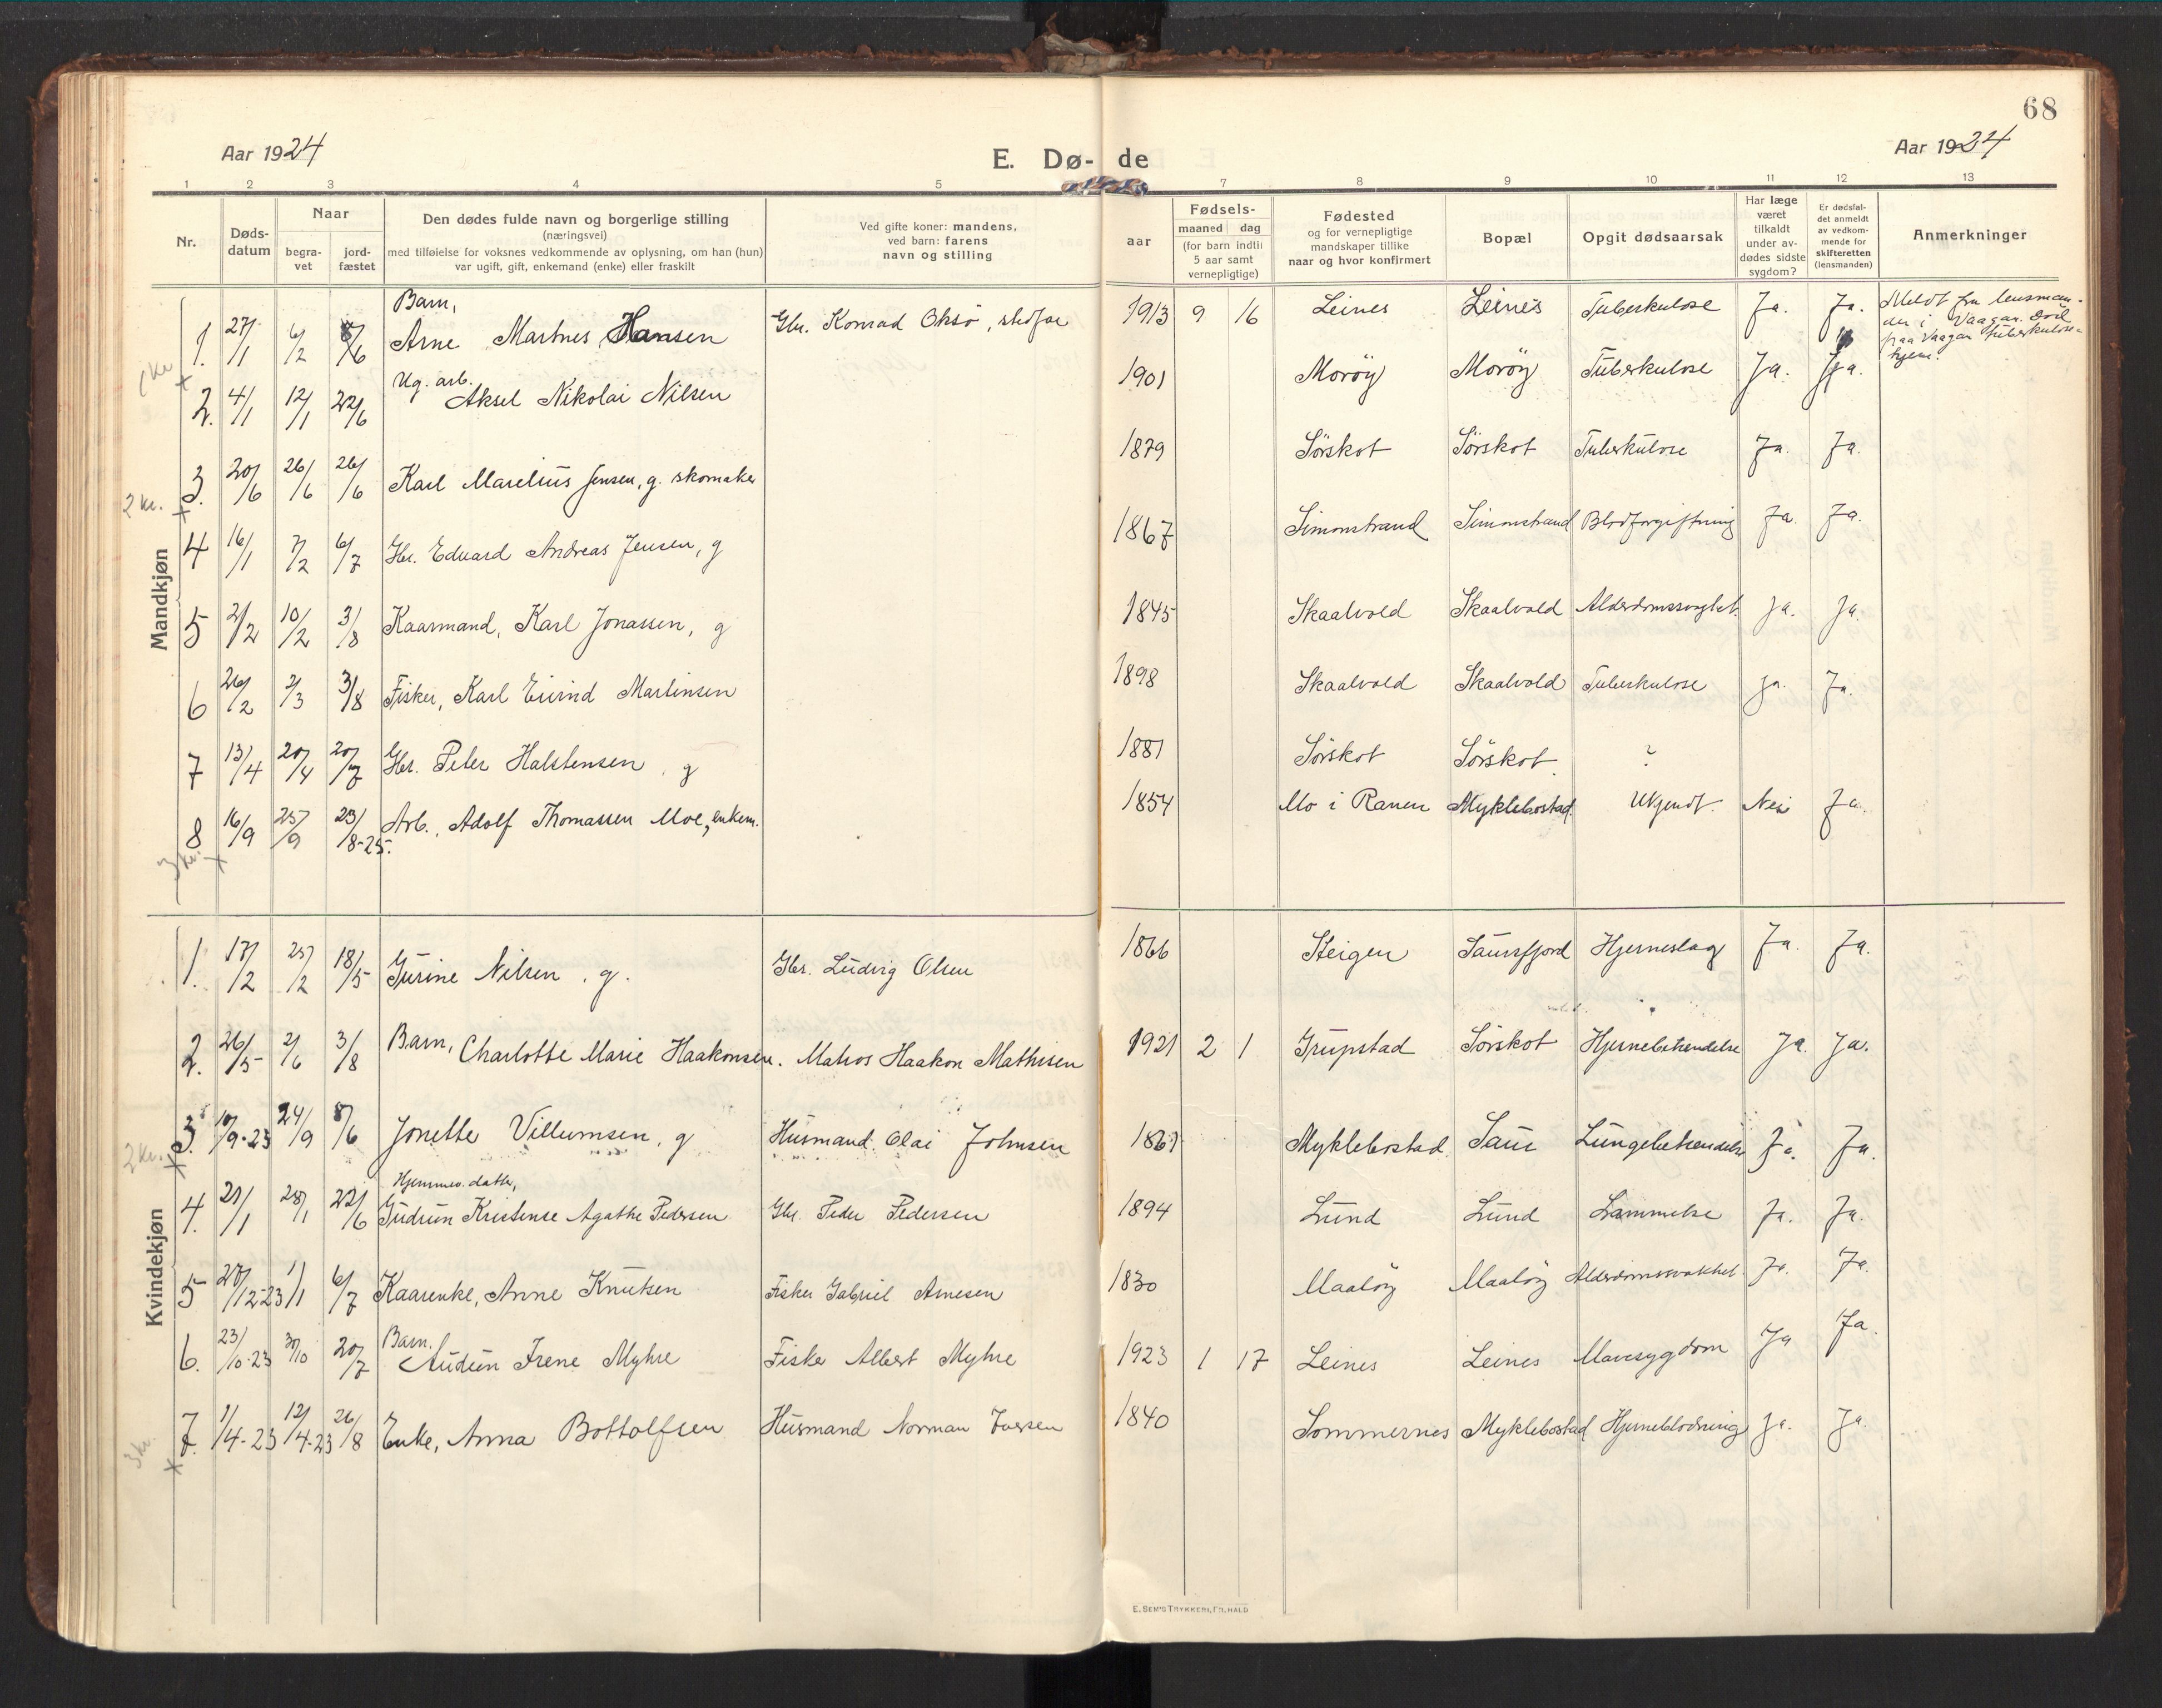 68
Aar 1924
E. Dø- de
Aar 1924
1 2 3 4 5 7 8 9 10 11 12 13
Nr.
Døds-
datum
Naar
begra-
vet
jord-
fæstet
Den dødes fulde navn og borgerlige stilling
(næringsvei)
med tilføielse for voksnes vedkommende av oplysning, om han (hun)
var ugift, gift, enkemand (enke) eller fraskilt
Ved gifte koner: mandens,
ved barn: farens
navn og stilling
aar
Fødsels-
maaned dag
(for barn indtil
5 aar samt
vernepligtige)
Fødested
og for vernepligtige
mandskaper tillike
naar og hvor konfirmert
Bopæl
Opgit dødsaarsak
Har læge
været
tilkaldt
under av-
dødes sidste
sygdom?
Er dødsfal-
det anmeldt
av vedkom-
mende for
skifteretten
(lensmanden)
Anmerkninger
Mandkjøn
1. 27/1 6/2 8/6 Barn, Arne Martnes Hansen Gbr. Konrad Oksö, stedfar 1913 9 16 Leines Leines Tuberkulose Ja. Ja. Meldt fra lensman-
den i Vaagan. Död
paa Vaagan tuberkulose-
hjem.
1 kr. x
2. 4/1 12/1 22/6 Ug. arb. Aksel Nikolai Nilsen 1901 Moröy Moröy Tuberkulose Ja. Ja.
3. 20/6 26/6 26/6 Karl Marelius Jensen, g. skomaker 1879 Sörskot Sörskot Tuberkulose Ja. Ja.
2 kr. x
4 16/1 7/2 6/7 Gbr. Edvard Andreas Jensen, g 1867 Simonstrand Simonstrand Blodforgiftning Ja. Ja.
5 2/2 10/2 3/8 Kaarmand, Karl Jonassen, g 1845 Skaalvold Skaalvold Ja. Ja.
6 26/2 2/3 3/8 Fisker, Karl Eivind Martinsen 1898 Skaalvold Skaalvold Tuberkulose Ja. Ja.
7 13/4 20/4 20/7 Gbr. Peter Halstensen, g 1881 Sörskot Sörskot. ?
8 16/9 25/9 23/8-25. Arb., Adolf Thomassen Moe, enkem. 1854 Mo i Ranen Myklebostad. Ukjendt. Nei Ja.
3 kr. x
Kvindekjøn
1. 17/2 25/2 18/5 Gurine Nilsen, g. Gbr. Ludvig Olsen 1866 Steigen Saursfjord Hjerneslag Ja. Ja.
2. 26/5 2/6 3/8 Barn, Charlotte Marie Haakonsen. Matros Haakon Mathisen 1921 2 1 Grupstad Sörskot Hjernebetændelse Ja. Ja.
3. 19/9-23 24/9 8/6 Jonette Villumsen, g Husmand Olai Johnsen 1861 Myklebostad Saur Lungebetændelse Ja. Ja.
2 kr. x
4. 21/1 28/1 22/6 Hjemmev. datter, Gudrun Kristense Agathe Pedersen Gbr. Peder Pedersen 1894 Lund Lund Lammelse Ja. Ja.
5 /12-23 1/1 6/7 Kaarenke, Anne Knutsen Fisker Gabriel Arnesen 1830 Maalöy Maalöy Alderdomssvakhet. Ja. Ja.
6. 23/10-23 30/10 20/7 Barn, Audun Irene Myhre Fisker Albert Myhre 1923 1 17 Leines Leines Mavesygdom Ja Ja.
7. 1/4-23 12/4-23 26/8 Enke, Anna Bottolfsen Husmand Norman Iversen 1840 Sommernes Myklebostad Hjerneblödning Ja. Ja.
3 kr. x
E. SEM'S TRYKKERI, FR.HALD